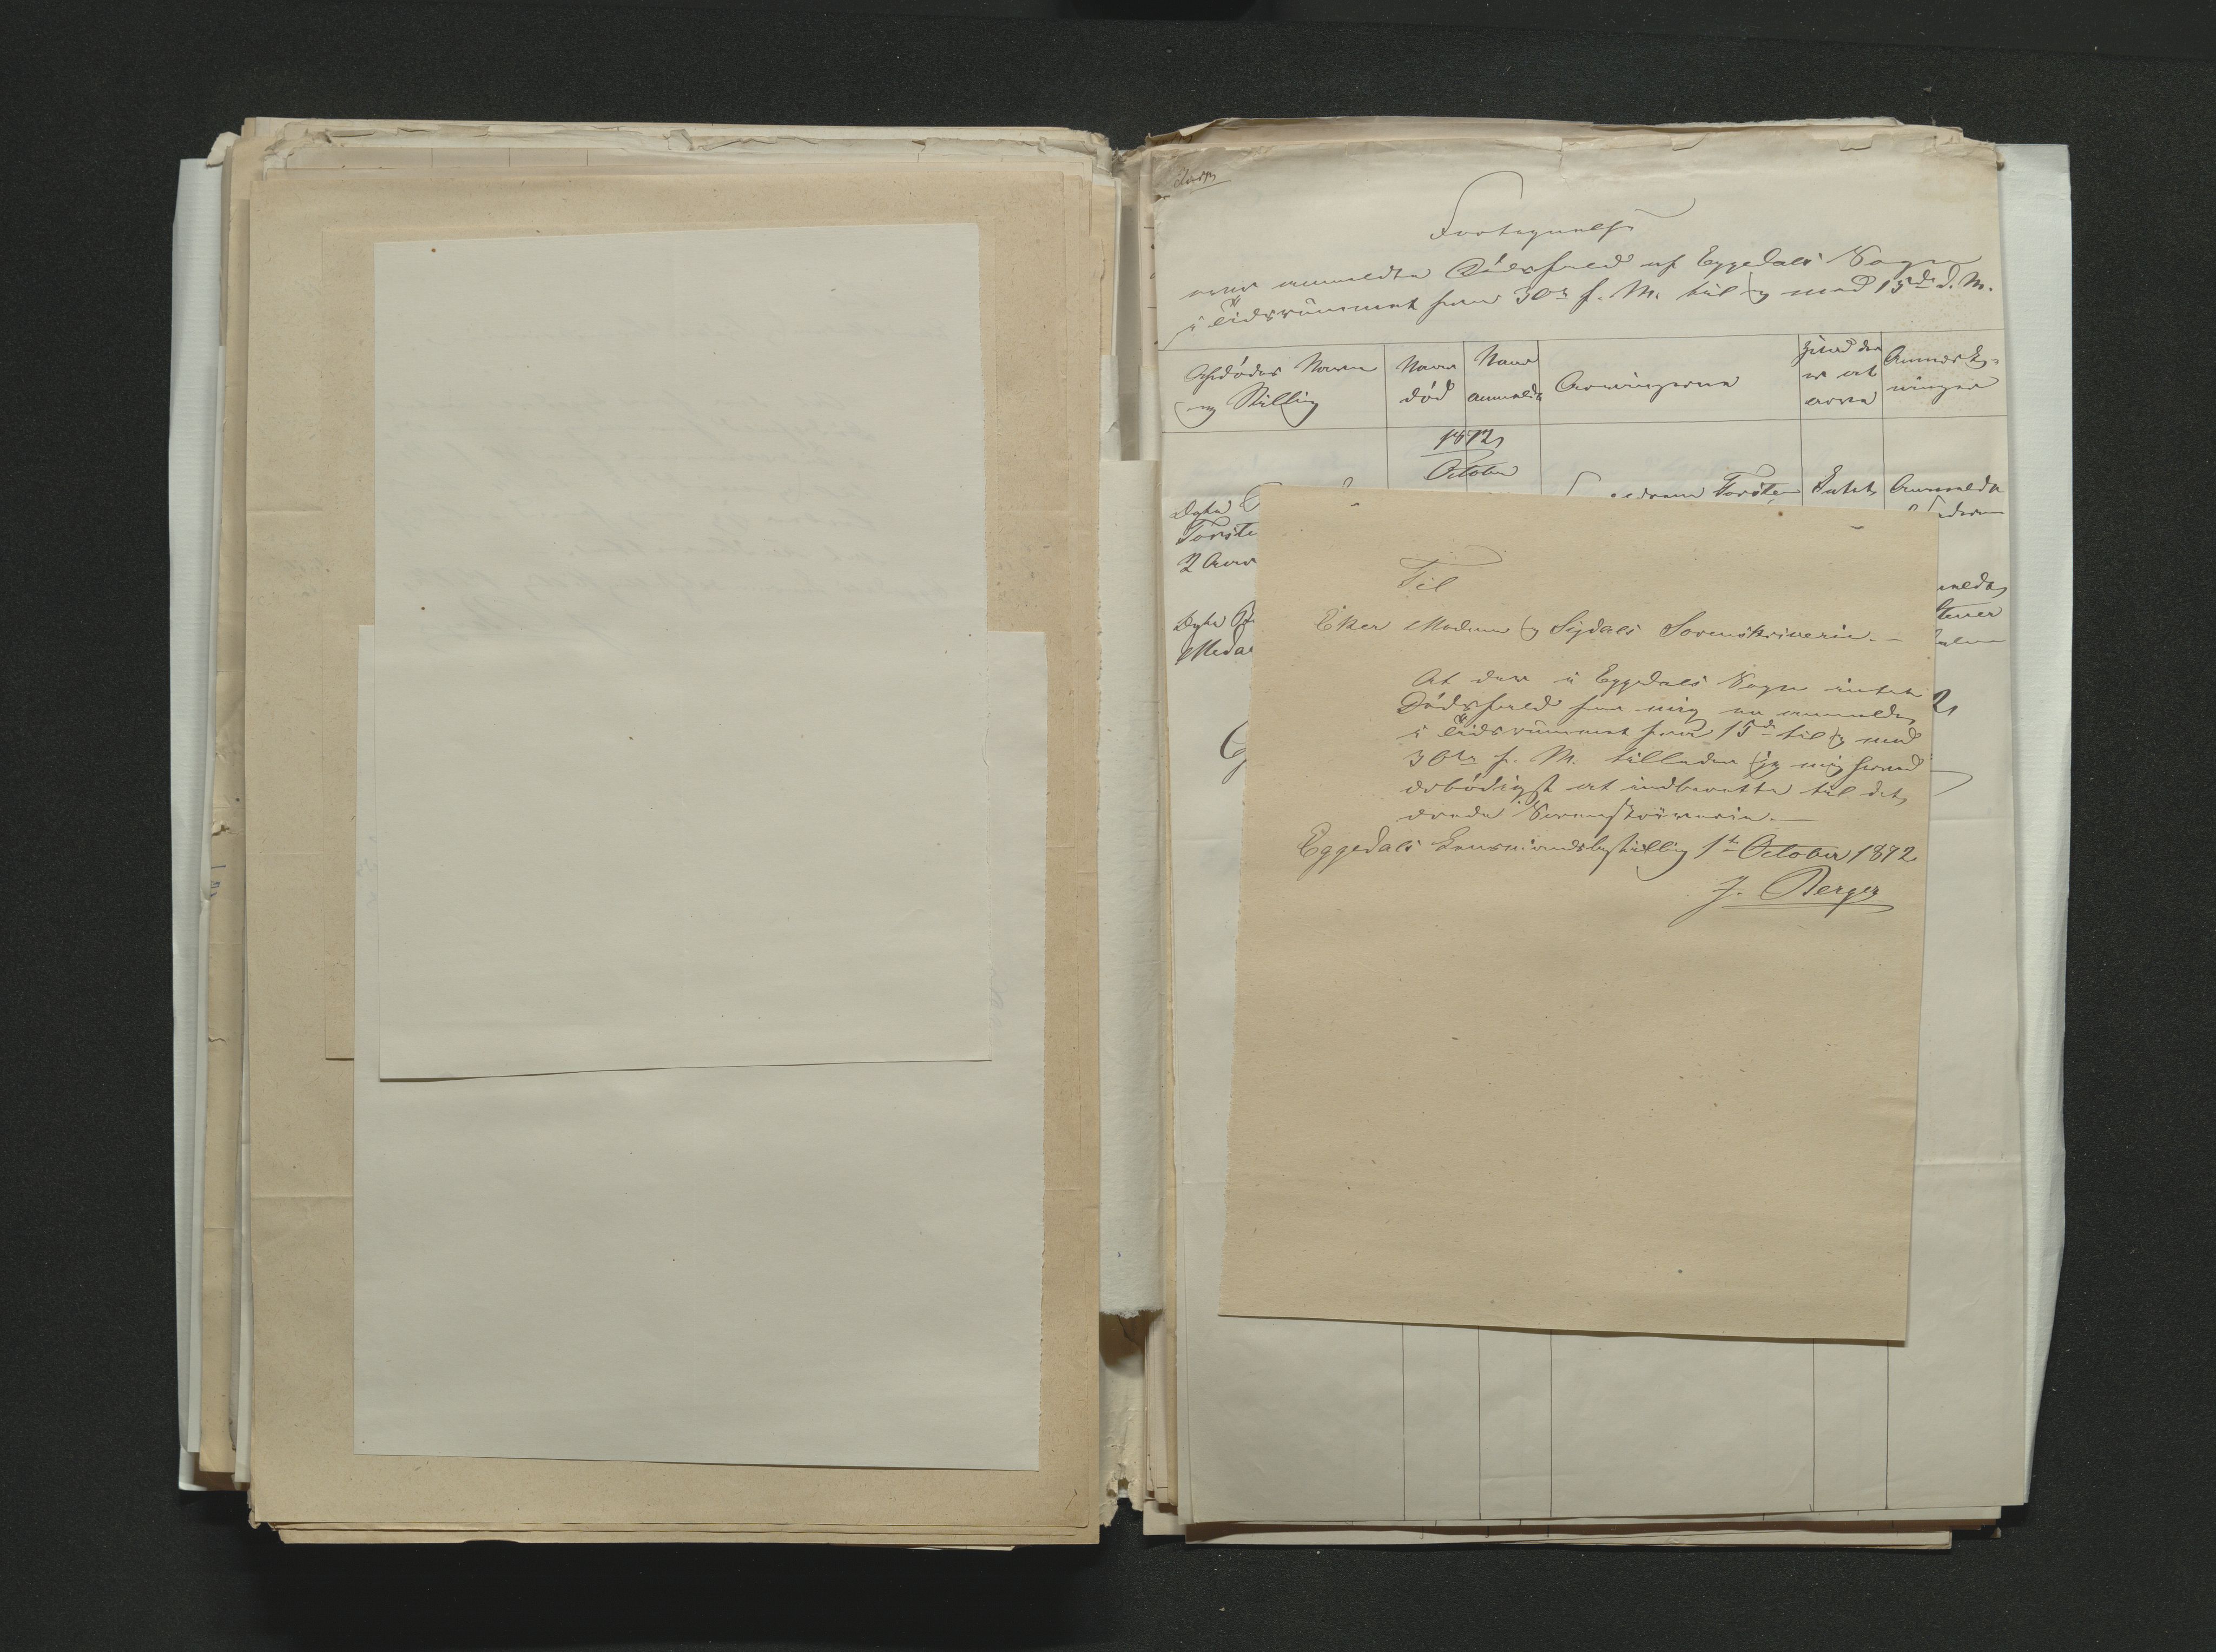 Fortegnelse
over anmeldte Dødsfald af Eggedals Sogn
i Tidsrummet fra 30te f. M. til og med 15de d. M.
Afdødes Navn
og Stilling
Naar
død
Naar
anmeldt
Arvingerne
Hvad der
er at
arve
Anmærk-
ninger
1872
October
Torsten
Intet
Anmeldt
Torste
2 Aar
Til
Eker Modum og Sigdals Sorenskriveri.-
At der i Eggedals Sogn intet
Dødsfald for mig er anmeldt
i Tidsrummet fra 15de til og med
30te f. M. tillader jeg mig herved
ærbødigst at indberette til det
ærede Sorenskriveri.-
Eggedals Lensmandsbestilling 1st October 1872
J. Berger